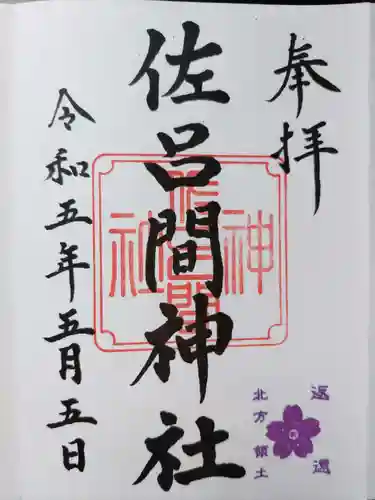 奉拝
佐呂間神社
令和五年五月五日
佐呂間神社
返還
北方領土